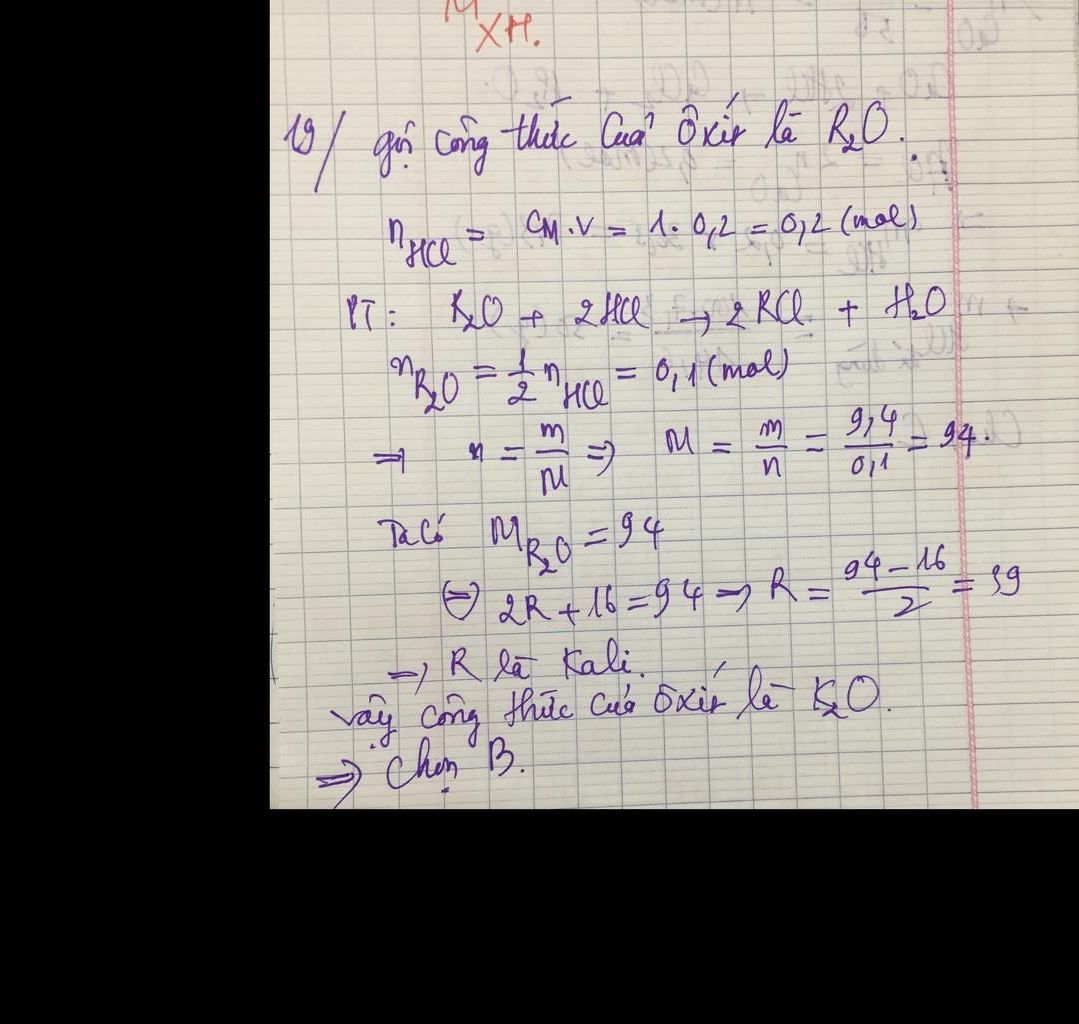 M
XH.
19/ gọi công thức của Ôxit là R₂O.
nHCl = CM.V = 1. 0,2 = 0,2 (mol)
PT: R₂O + 2HCl → 2RCl + H₂O
nR₂O = 1/2 nHCl = 0,1 (mol)
⇒ n = m/M ⇒ M = m/n = 9,4/0,1 = 94.
Ta có MR₂O = 94
⇔ 2R + 16 = 94 ⇒ R = (94 - 16)/2 = 39
⇒ R là Kali.
vậy công thức của ôxit là K₂O.
⇒ Chọn B.